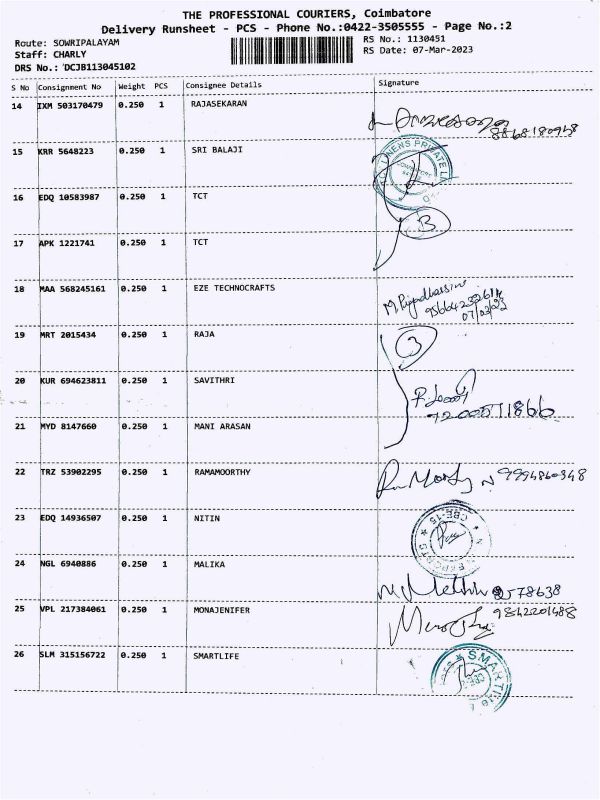 THE PROFESSIONAL COURIERS, Coimbatore
Delivery Runsheet - PCS - Phone No.:0422-3505555 - Page No.:2
Route: SOWRIPALAYAM RS No.: 1130451
Staff: CHARLY RS Date: 07-Mar-2023
DRS No.: DCJB113045102
S No Consignment No Weight PCS Consignee Details Signature
14 IXM 503170479 0.250 1 RAJASEKARAN
15 KRR 5648223 0.250 1 SRI BALAJI
LINENS PRIVATE
16 EDQ 10583987 0.250 1 TCT
3
17 APK 1221741 0.250 1 TCT
18 MAA 568245161 0.250 1 EZE TECHNOCRAFTS
07/03/23
19 MRT 2015434 0.250 1 RAJA
3
20 KUR 694623811 0.250 1 SAVITHRI
21 MYD 8147660 0.250 1 MANI ARASAN
22 TRZ 53902295 0.250 1 RAMAMOORTHY
9994860348
23 EDQ 14936507 0.250 1 NITIN
CBE-15
24 NGL 6940886 0.250 1 MALIKA
25 VPL 217384061 0.250 1 MONAJENIFER
9842201488
26 SLM 315156722 0.250 1 SMARTLIFE